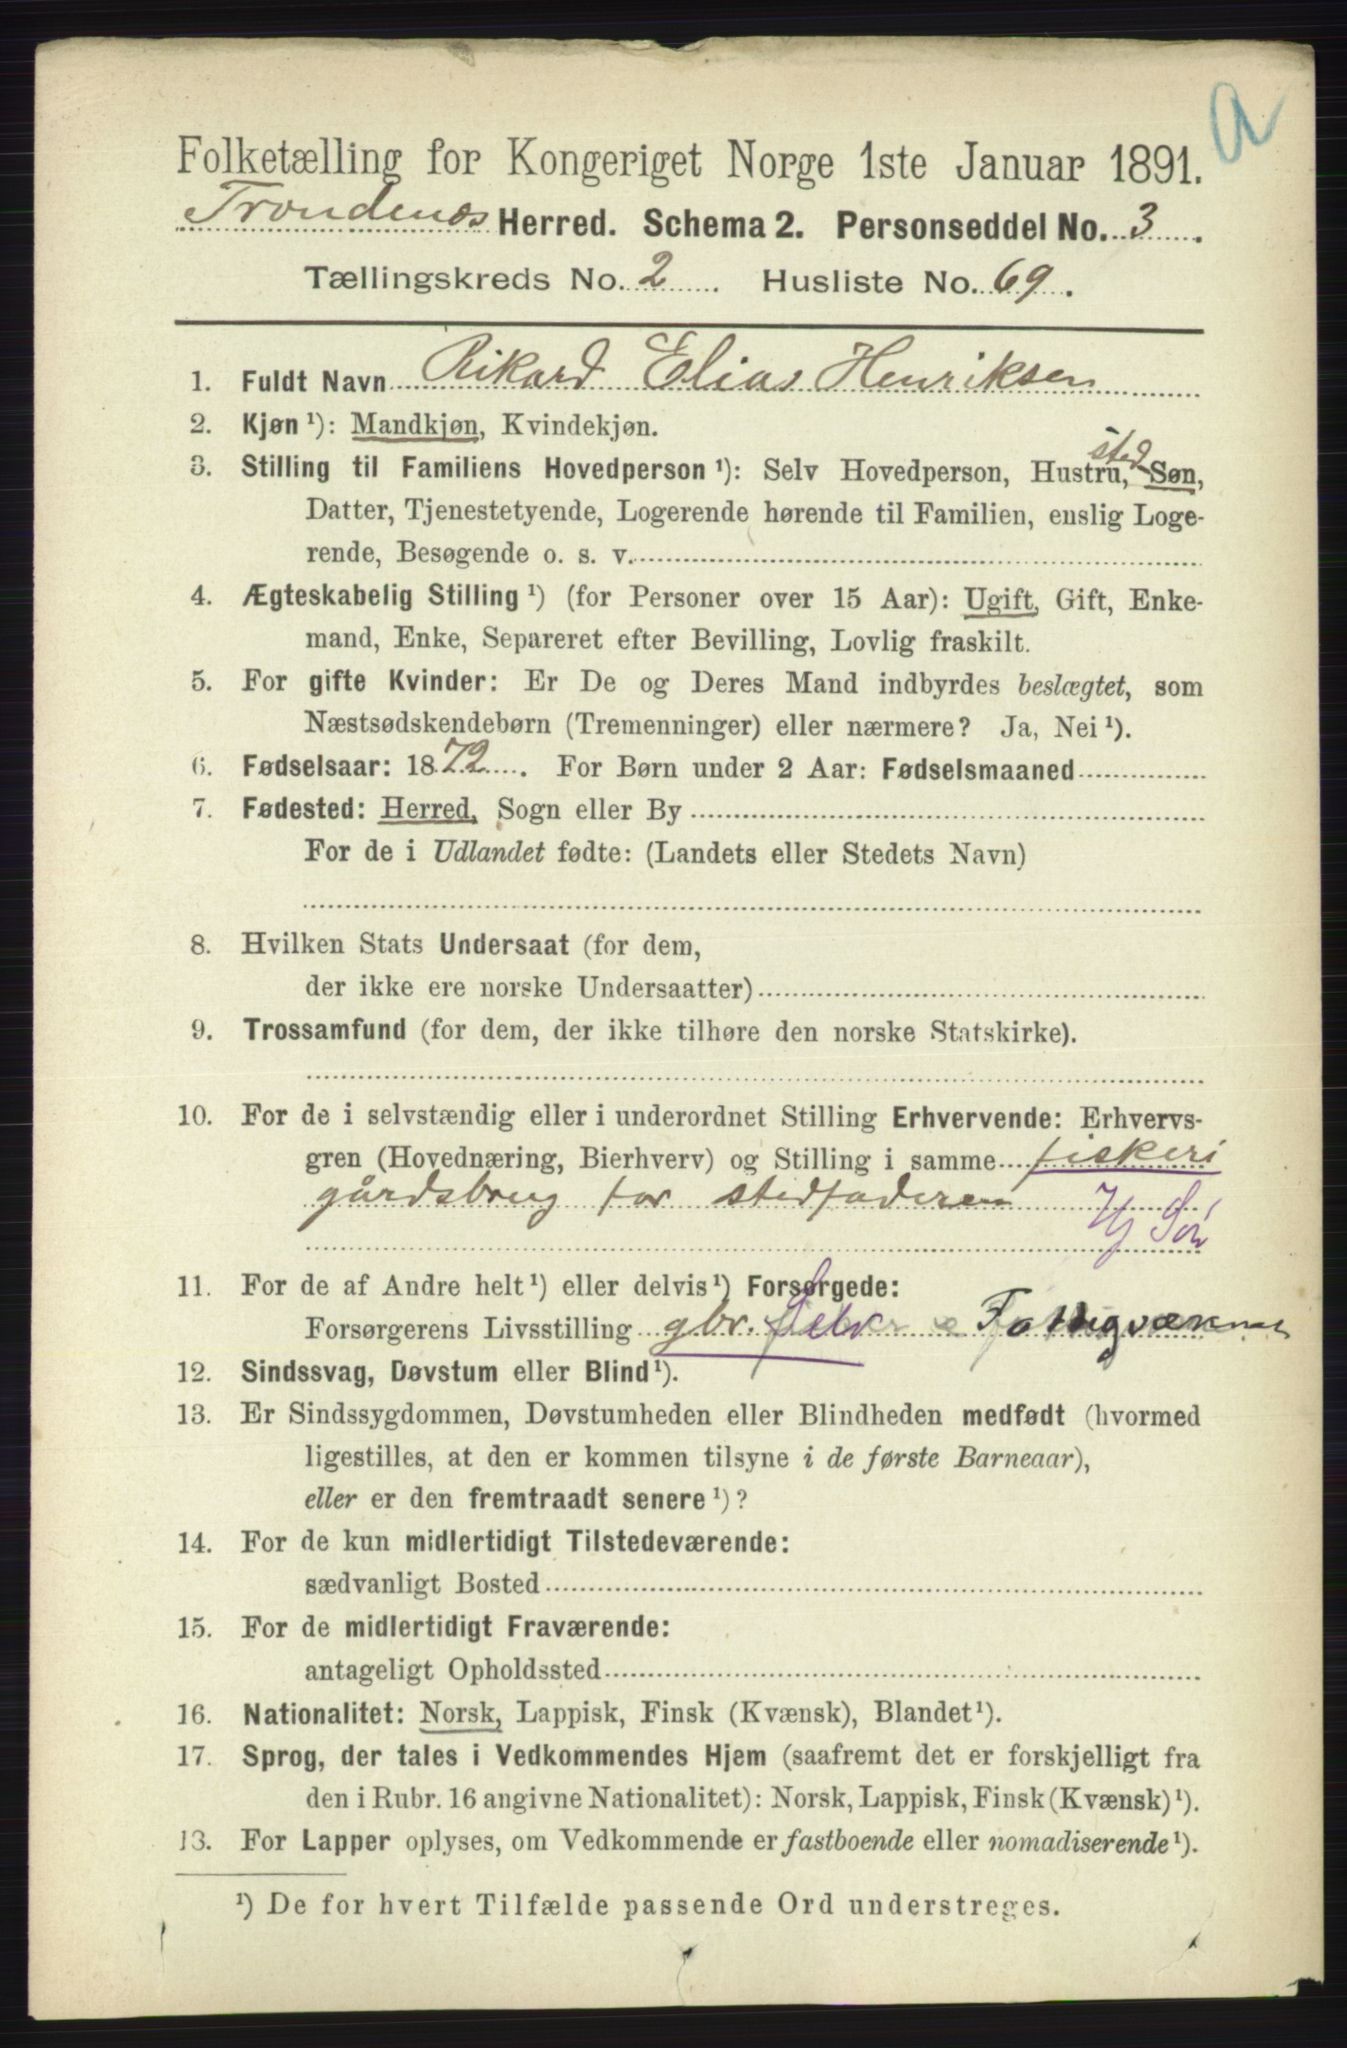 a
Folketælling for Kongeriget Norge 1ste Januar 1891.
Trondenæs Herred. Schema 2. Personseddel No. 3.
Tællingskreds No. 2. Husliste No. 69.
1. Fuldt Navn Rikard Elias Henriksen
2. Kjøn ¹): Mandkjøn, Kvindekjøn.
sted
3. Stilling til Familiens Hovedperson ¹): Selv Hovedperson, Hustru, Søn,
Datter, Tjenestetyende, Logerende hørende til Familien, enslig Loge-
rende, Besøgende o. s. v.
4. Ægteskabelig Stilling ¹) (for Personer over 15 Aar): Ugift, Gift, Enke-
mand, Enke, Separeret efter Bevilling, Lovlig fraskilt.
5. For gifte Kvinder: Er De og Deres Mand indbyrdes beslægtet, som
Næstsødskendebørn (Tremenninger) eller nærmere? Ja, Nei ¹).
6. Fødselsaar: 1872. For Børn under 2 Aar: Fødselsmaaned
7. Fødested: Herred, Sogn eller By
For de i Udlandet fødte: (Landets eller Stedets Navn)
8. Hvilken Stats Undersaat (for dem,
der ikke ere norske Undersaatter)
9. Trossamfund (for dem, der ikke tilhøre den norske Statskirke).
10. For de i selvstændig eller i underordnet Stilling Erhvervende: Erhvervs-
gren (Hovednæring, Bierhverv) og Stilling i samme fiskeri
gårdsbrug for stedfaderen
11. For de af Andre helt ¹) eller delvis ¹) Forsørgede:
Forsørgerens Livsstilling gbr. Selv
12. Sindssvag, Døvstum eller Blind ¹).
13. Er Sindssygdommen, Døvstumheden eller Blindheden medfødt (hvormed
ligestilles, at den er kommen tilsyne i de første Barneaar),
eller er den fremtraadt senere ¹)?
14. For de kun midlertidigt Tilstedeværende:
sædvanligt Bosted
15. For de midlertidigt Fraværende:
antageligt Opholdssted
16. Nationalitet: Norsk, Lappisk, Finsk (Kvænsk), Blandet ¹).
17. Sprog, der tales i Vedkommendes Hjem (saafremt det er forskjelligt fra
den i Rubr. 16 angivne Nationalitet): Norsk, Lappisk, Finsk (Kvænsk) ¹).
18. For Lapper oplyses, om Vedkommende er fastboende eller nomadiserende ¹).
¹) De for hvert Tilfælde passende Ord understreges.